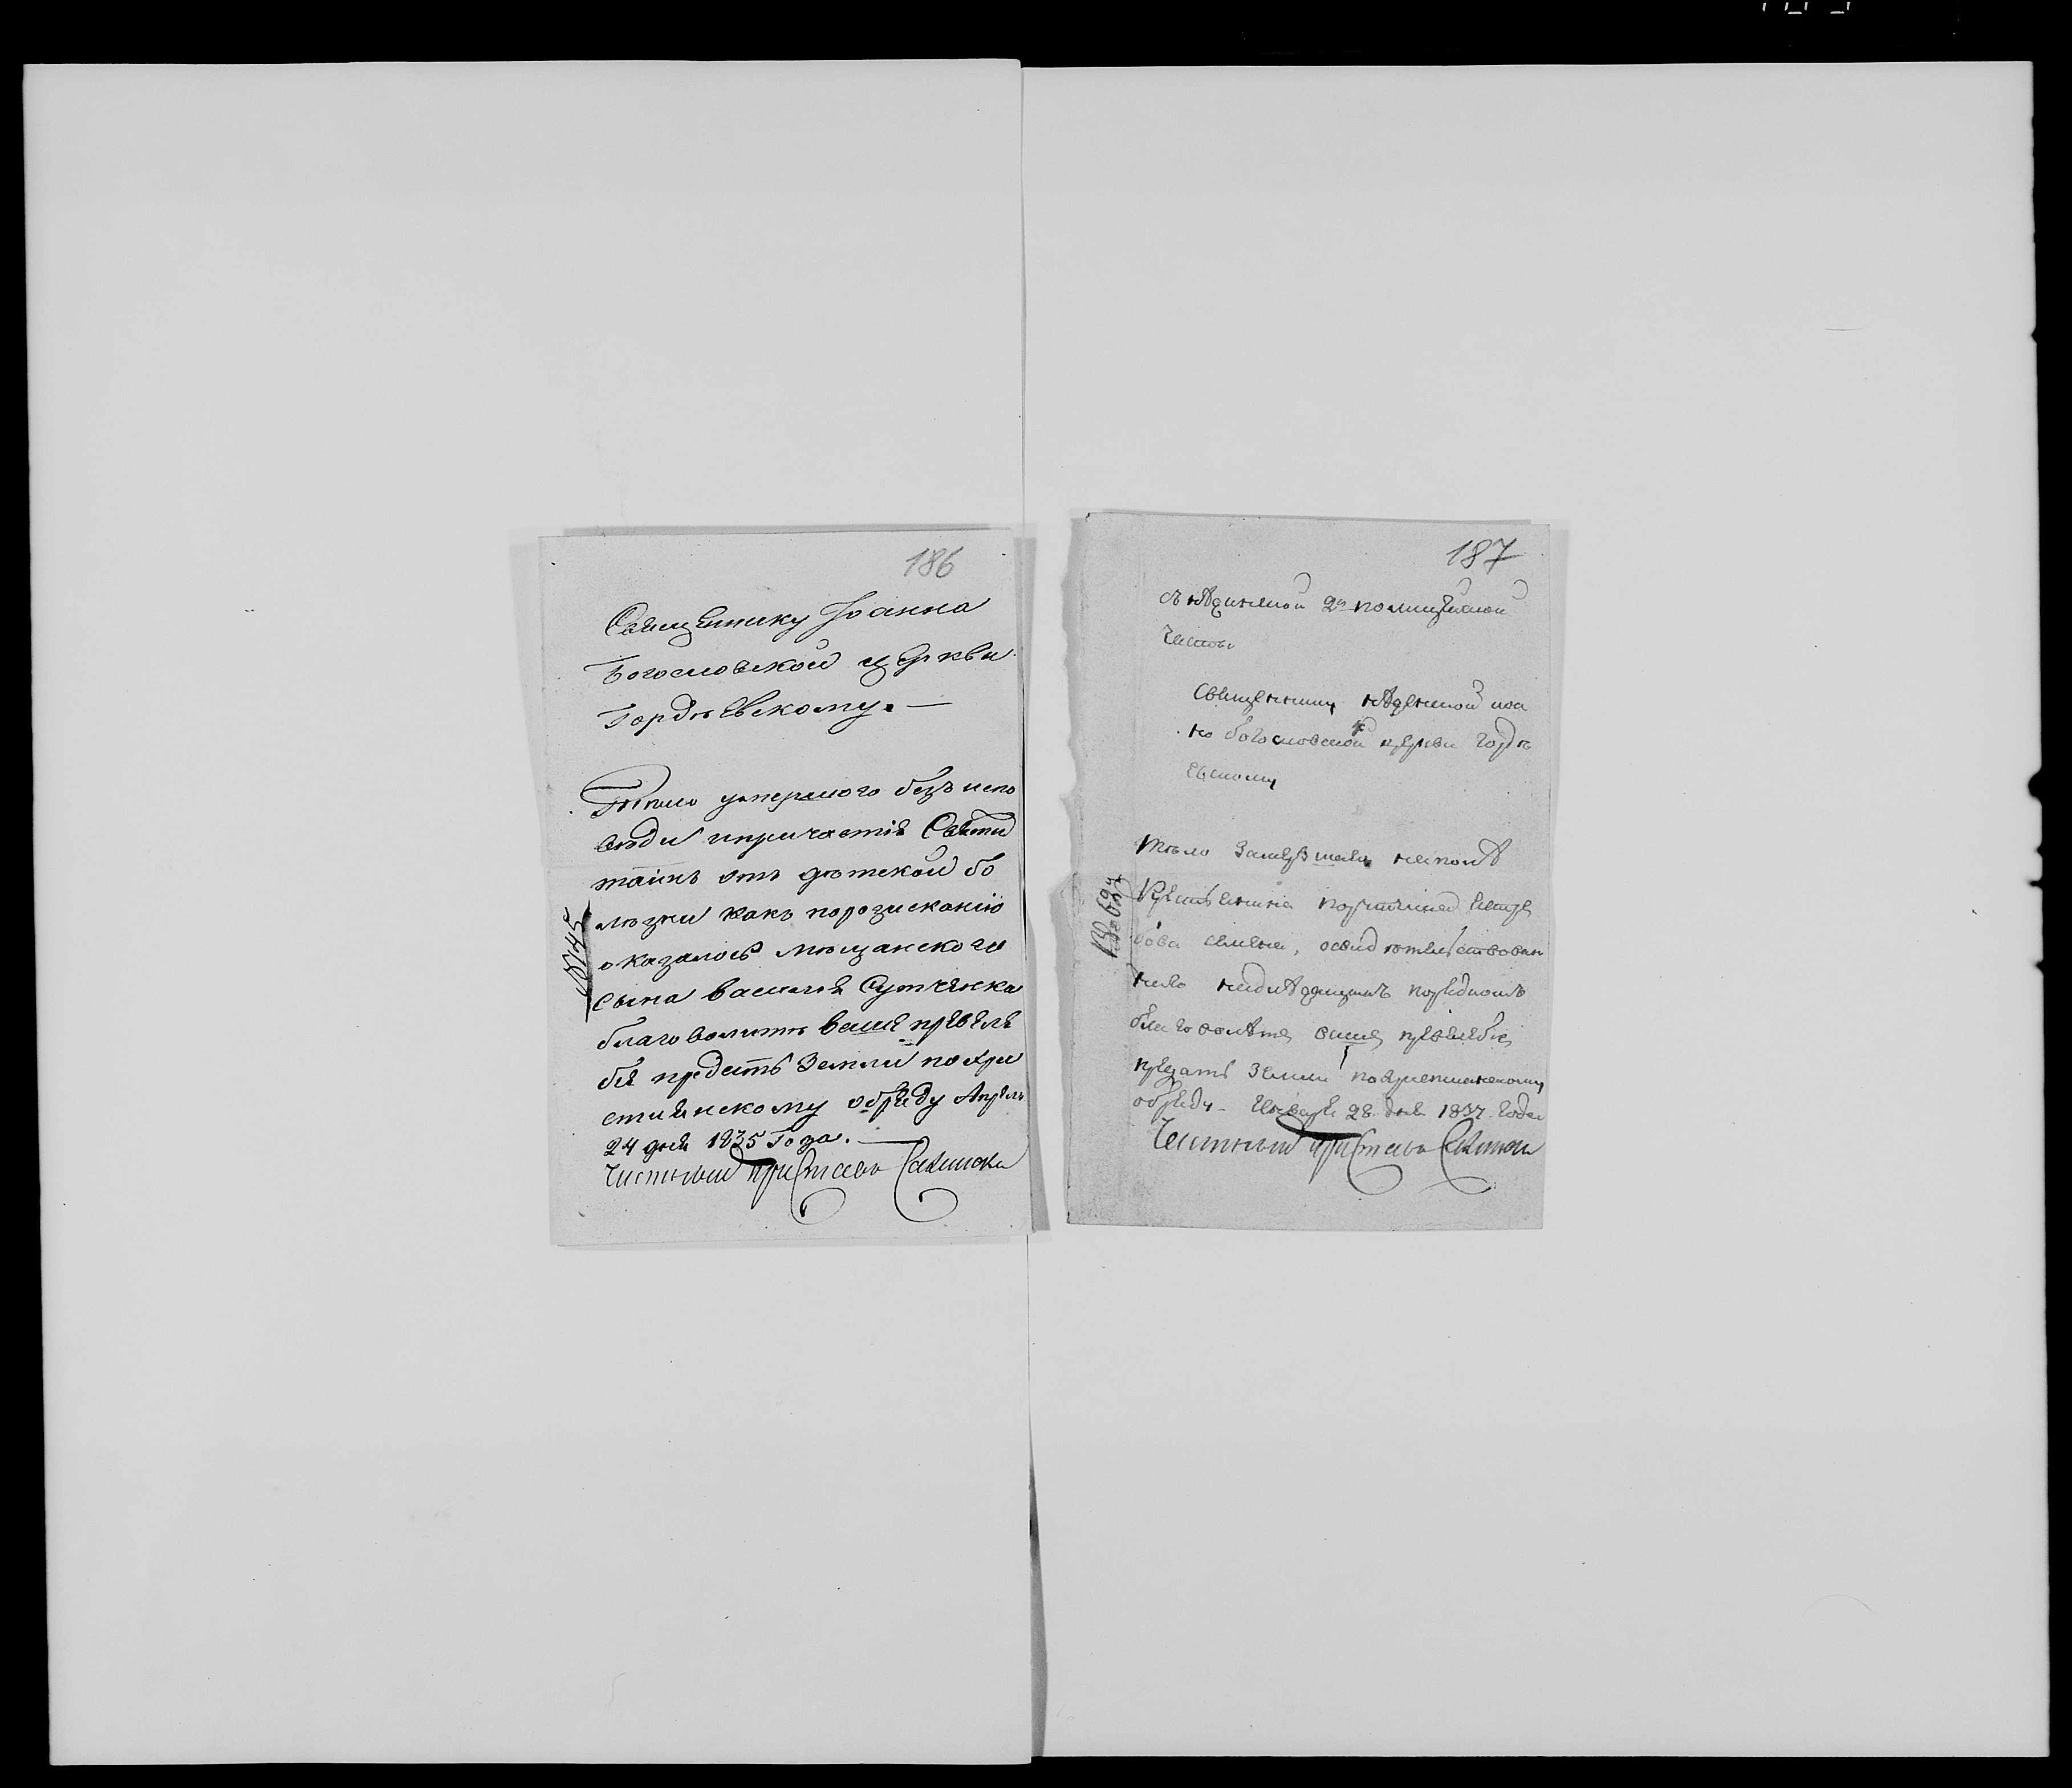 186
Священнику Іоанно
Богословской церкви
Гордѣевскому. —
Тѣло умершого безъ испо
вѣди ипричастія Святы
таинъ отъ дѣтской бо
лѣзни какъ порозысканію
оказалось мѣщанского
сына василія Сутченка
благоволить ваше превеле
бія предать Земли похри
стиянскому обряду Апреля
24 дня 1835 Года. —
Частный приставъ
№ 745
187
Съ нѣжинской 2й полицейской
Части
Священнику нѣжинской иоа
но богословской церкви горде
евскому
тѣло Замерзшаго
Крестьянина
семена, освидѣтельствован
наго надлѣжащимъ порядкомъ
благоволите ваше превелебіе
предать Земли похристианскому
обряду. Января 28 дня 1837 Года
Частный приставъ
№ 694